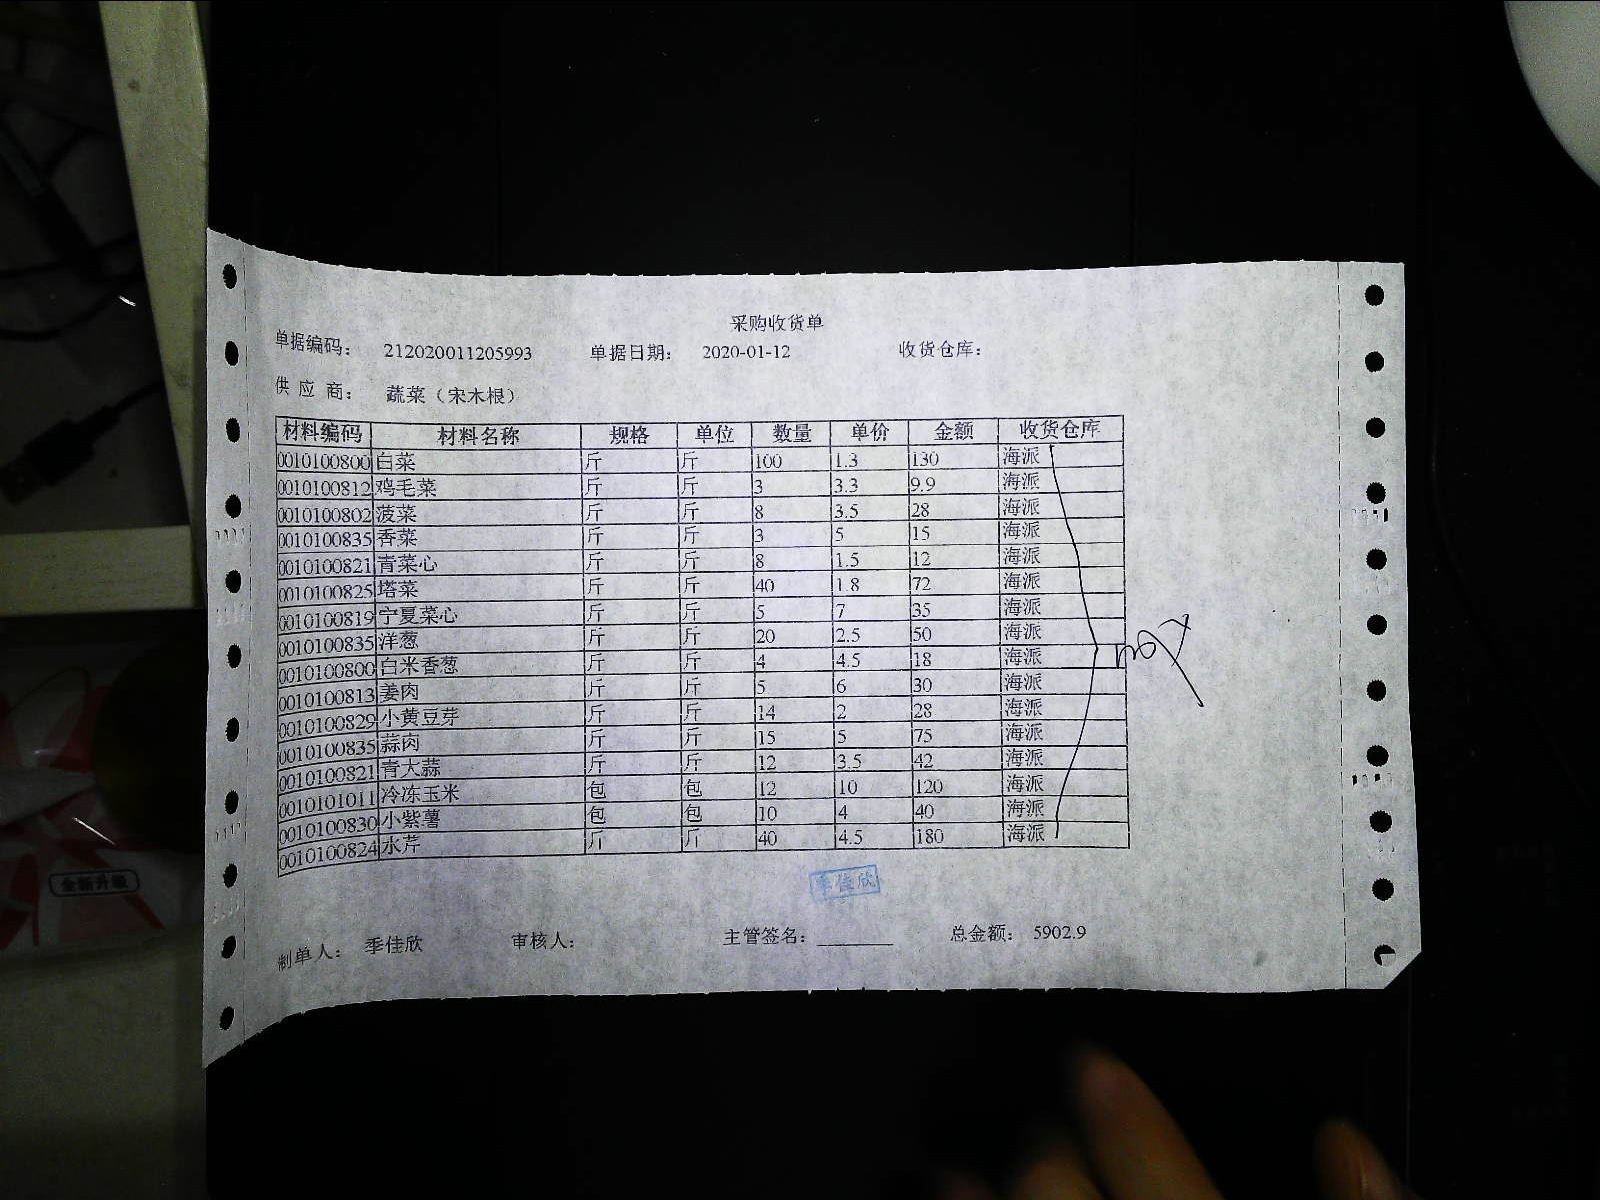 采购收货单
单据编码： 212020011205993 单据日期： 2020-01-12 收货仓库：
供 应 商： 蔬菜（宋木根）
材料编码 材料名称 规格 单位 数量 单价 金额 收货仓库
0010100800 白菜 斤 斤 100 1.3 130 海派
0010100812 鸡毛菜 斤 斤 3 3.3 9.9 海派
0010100802 菠菜 斤 斤 8 3.5 28 海派
0010100835 香菜 斤 斤 3 5 15 海派
0010100821 青菜心 斤 斤 8 1.5 12 海派
0010100825 塔菜 斤 斤 40 1.8 72 海派
0010100819 宁夏菜心 斤 斤 5 7 35 海派
0010100835 洋葱 斤 斤 20 2.5 50 海派
0010100800 白米香葱 斤 斤 4 4.5 18 海派
0010100813 姜肉 斤 斤 5 6 30 海派
0010100829 小黄豆芽 斤 斤 14 2 28 海派
0010100835 蒜肉 斤 斤 15 5 75 海派
0010100821 青大蒜 斤 斤 12 3.5 42 海派
0010101011 冷冻玉米 包 包 12 10 120 海派
0010100830 小紫薯 包 包 10 4 40 海派
0010100824 水芹 斤 斤 40 4.5 180 海派
季佳欣
制单人： 季佳欣 审核人： 主管签名： 总金额： 5902.9
全新升级